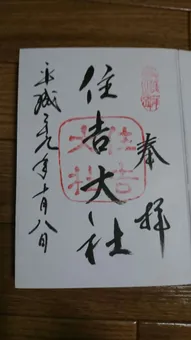 奉拝
住吉大社
住吉
大社
平成二九年十月八日